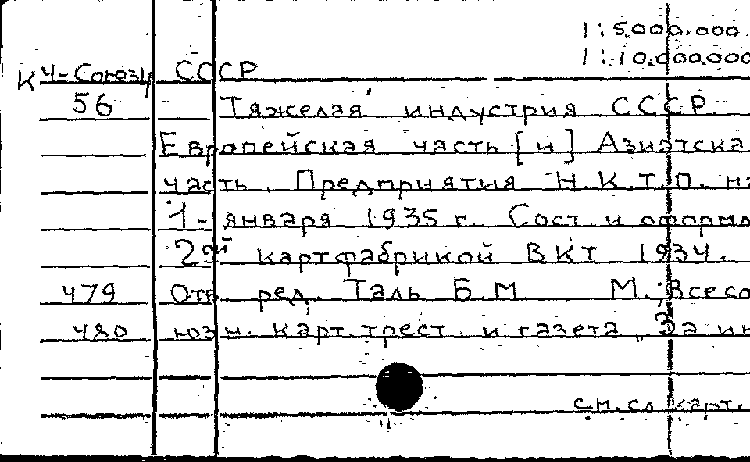 1:5.000.000
1:10.000.000
К Ч-Союз СССР
56 Тяжелая индустрия СССР
Европейская часть [и] Азиатска
часть. Предприятия Н.К.Т.П. на
1-января 1935 г. Сост и оформл
2ой картфабрикой ВКТ 1934.
479 Отв ред. Таль Б.М М., Всесо
480 юзн. карт.трест и газета „За ин
см.сл карт.